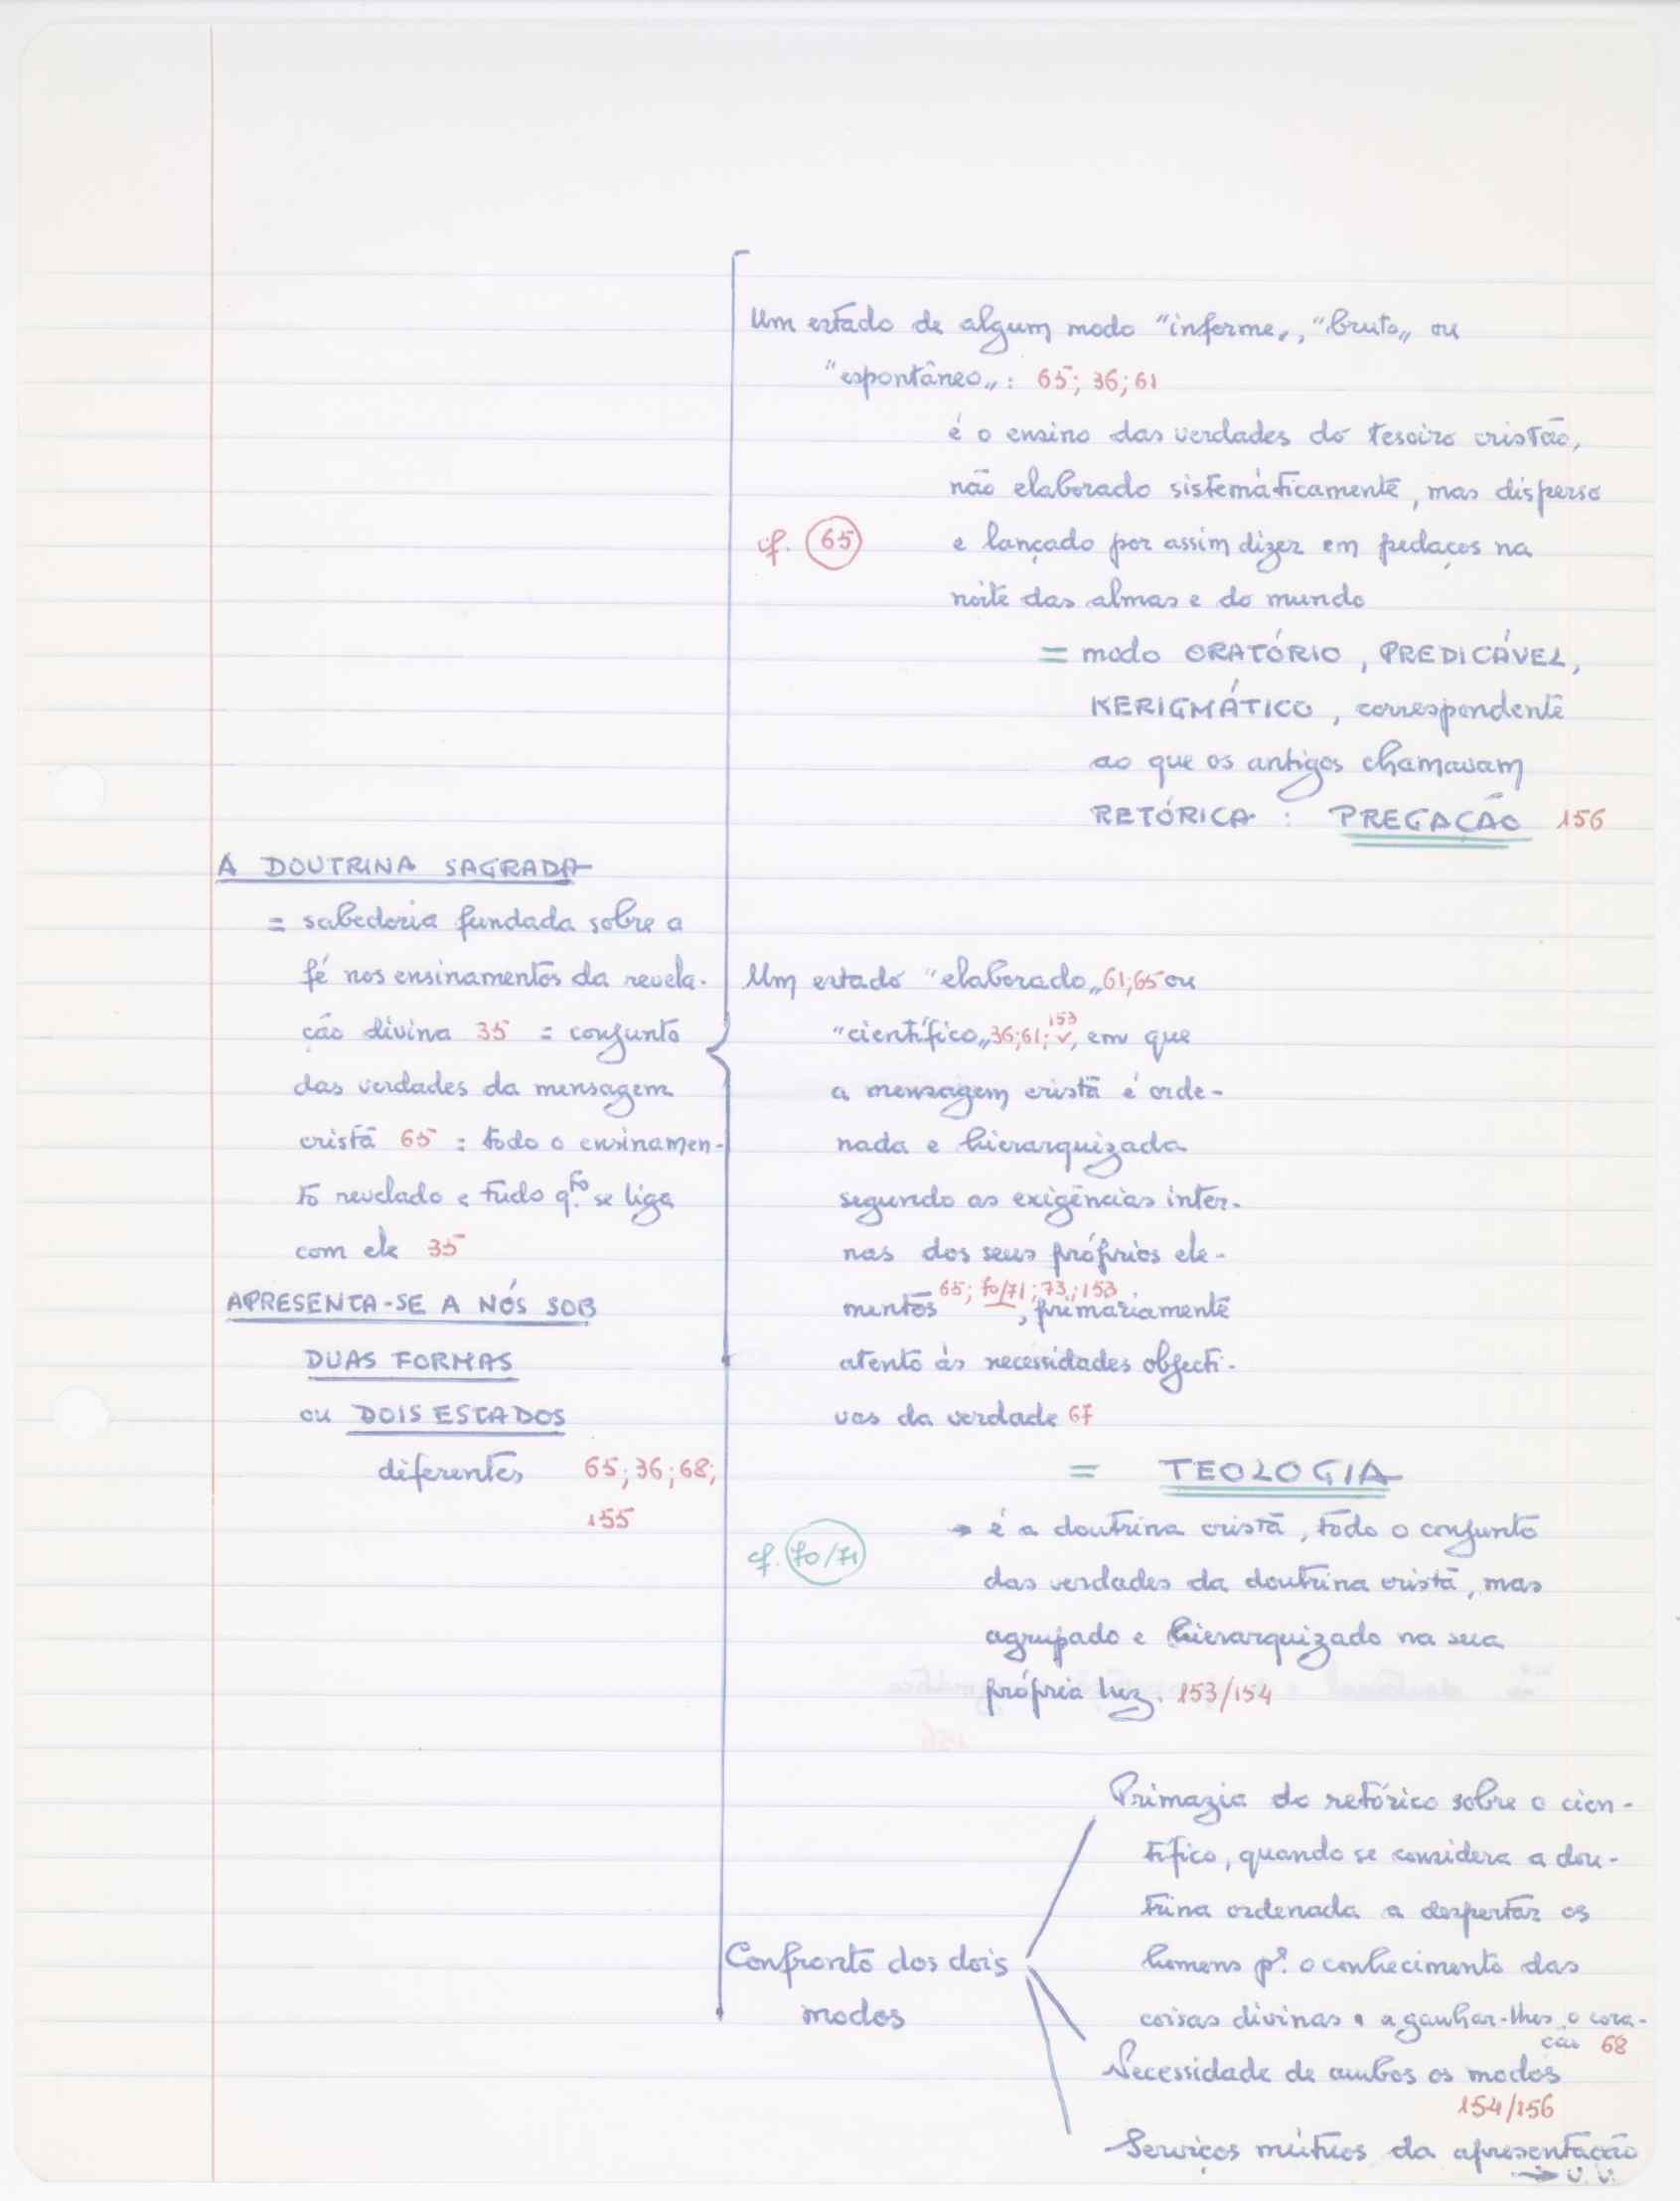 A DOUTRINA SAGRADA
= sabedoria fundada sobre a
fé nos ensinamentos da revela-
ção divina 35 = conjunto
das verdades da mensagem
cristã 65 : todo o ensinamen-
to revelado e tudo qto. se liga
com ele 35
APRESENTA-SE A NÓS SOB
DUAS FORMAS
ou DOIS ESTADOS
diferentes 65; 36; 68;
155
Um estado de algum modo "informe„, "bruto„ ou
"espontâneo„: 65; 36; 61
é o ensino das verdades do tesoiro cristão,
não elaborado sistemàticamente, mas disperso
cf. 65 e lançado por assim dizer em pedaços na
noite das almas e do mundo
= modo ORATÓRIO, PREDICÁVEL,
KERIGMÁTICO, correspondente
ao que os antigos chamavam
RETÓRICA : PREGAÇÃO 156
Um estado "elaborado„ 61; 65 ou
"científico„ 36; 61; 153, em que
a mensagem cristã é orde-
nada e hierarquizada
segundo as exigências inter-
nas dos seus próprios ele-
mentos 65; 70/71; 73; 153, primariamente
atento às necessidades objecti-
vas da verdade 67
= TEOLOGIA
cf. 70/71 → é a doutrina cristã, todo o conjunto
das verdades da doutrina cristã, mas
agrupado e hierarquizado na sua
própria luz. 153/154
Confronto dos dois
modos
Primazia do retórico sobre o cien-
tífico, quando se considera a dou-
trina ordenada a despertar os
homens pª. o conhecimento das
coisas divinas e a ganhar-lhes o cora-
ção 68
Necessidade de ambos os modos
154/156
Serviços mútuos da apresentação
→ v. v.